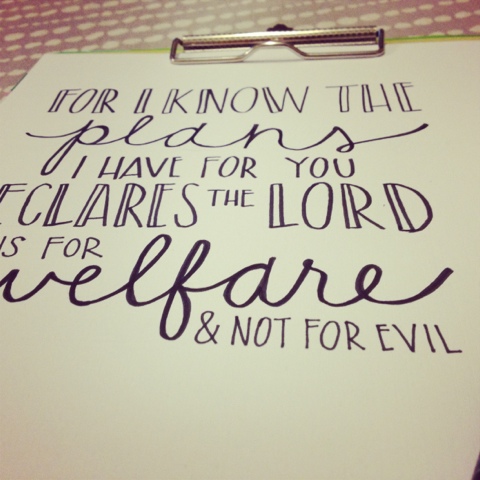 FOR I KNOW THE
plans
I HAVE FOR YOU
ECLARES THE LORD
NS FOR
welfare
& NOT FOR EVIL